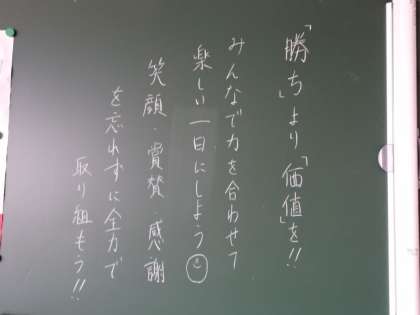 「勝ち」より「価値」を!!
みんなで力を合わせて
楽しい一日にしよう☺
笑顔・賞賛・感謝
を忘れずに全力で
取り組もう!!